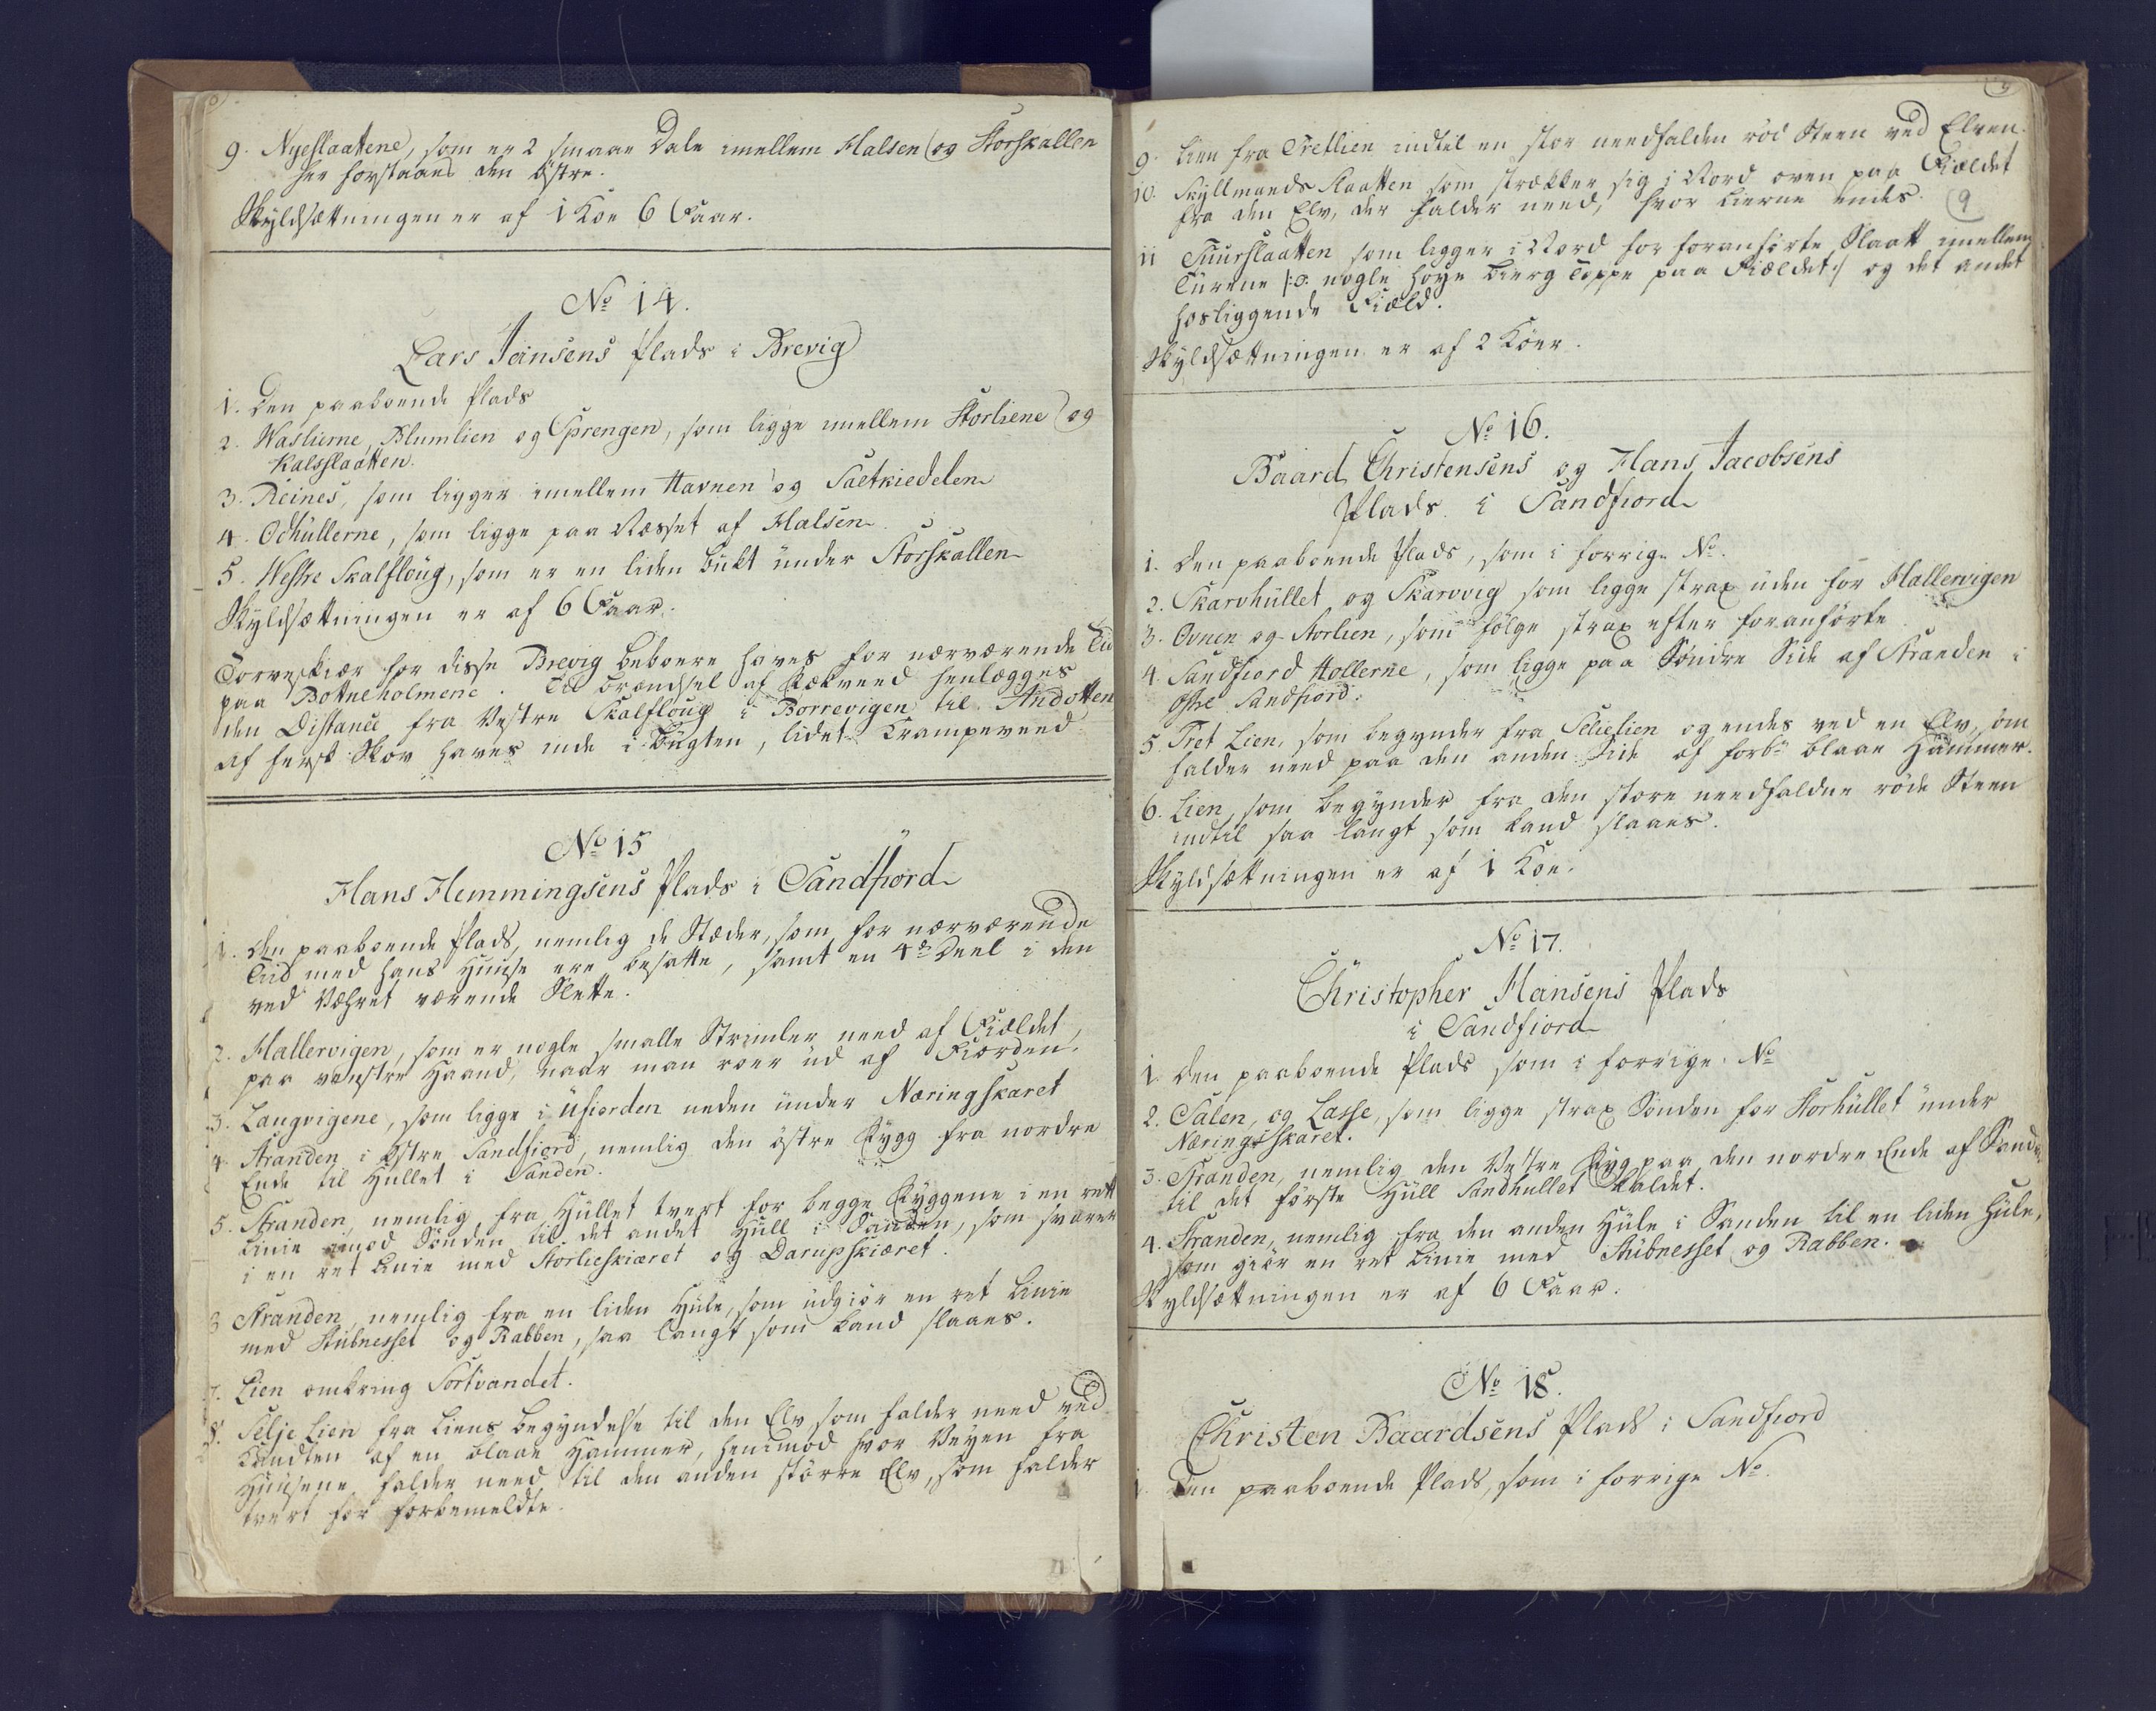 9. Nyeslaattene, som er 2 smaae Dale imellem Halsen og Storskallen
her forstaaes den östre.
Skyldsættningen er af 1 Koe 6 Faar.
No 14.
Lars Jansens Plads i Brevig
1. Den paaboende Plads
2. Waslierne, Blumlien og Sprengen, som ligge imellem Storliene og
Kalsslaatten.
3. Reines, som ligger imellem Havnen og Saetkiedelen
4. Odhullerne, som ligge paa Næsset af Halsen
5. Westre Skalfloug, som er en liden Bukt under Storskallen
Skyldsættningen er af 6 Faar.
Torveskiær for disse Brevig Beboere haves for nærværende Tid
paa Botneholmene. Til Brændsel af Rækveed henlægges
den Distance fra Vestre Skalfloug i Borrevigen til Andotten
af fersk Skov haves inde i Bugten, lidet Krampeveed
No 15
Hans Hemmingsens Plads i Sandfiord
1. Den paaboende Plads, nemlig de Stæder, som for nærværende
Tiid med hans Huuse ere besatte, samt en 4de Deel i den
ved Væhret værende Slette.
2. Hallervigen, som er nogle smalle Strimler need af Fiældet,
paa venstre Haand, naar man roer ud af Fiorden.
3. Langvigene, som ligge i Ufiorden neden under Næringskaret
4. Stranden i östre Sandfiord, nemlig den östre Rygg fra nordre
Ende til Hullet i Sanden.
5. Stranden, nemlig fra Hullet tvert for begge Ryggene i en rett
Linie imod Sönden til det andet Hull i Sanden, som svarer
i en ret Linie med Storlieskiæret og Darupskiæret.
6 Stranden, nemlig fra en liden Hule, som udgiör en ret Linie
med Stubnesset og Rabben, saa langt som Land slaaes.
7. Lien omkring Sortvandet.
8. Selje Lien fra Liens Begyndelse til den Elv som falder need ved
Kandten af en blaae Hammer, henimod hvor Veyen fra
Huusene falder need til den anden större Elv, som falder
tvert for forbemeldte.
9
9. Lien fra Tretlien indtil en stor needfalden röd Steen ved Elven.
10. Skyllmands Slaatten som strækker sig i Nord oven paa Fiældet
fra den Elv, der falder need, hvor Lierne endes. 9
11 Tuurslaatten som ligger i Nord for foranförte Slaatt imellem
Turene /:o: nogle høye Bierg Toppe paa Fiældet:/ og det andet
hosliggende Fiæld.
Skyldsættningen er af 2 Köer.
No 16.
Baard Christensens og Hans Jacobsens
Plads i Sandfiord
1. Den paaboende Plads, som i forrige No.
2. Skarvhullet og Skarvvig som ligge strax uden for Hallervigen
3. Ovnen og Storlien, som fölge strax efter foranförte
4. Sandfiord Hollerne, som ligge paa Söndre Side af Stranden i
östre Sandfiord.
5. Tret Lien, som begynder fra Selielien og endes ved en Elv, som
falder need paa den anden Side af forbe blaae Hammer.
6. Lien, som begynder fra den store needfaldne röde Steen
indtil saa langt som Land slaaes.
Skyldsættningen er af 1 Koe.
No 17.
Christopher Hansens Plads
i Sandfiord
1. Den paaboende Plads som i forrige No
2. Salen, og Lasse, som ligge strax Sönden for Storhullet under
Næringsskaret.
3. Stranden, nemlig den Vestre Ryg paa den nordre Ende af Sanden
til det förste Hull Sandhullet kaldet.
4. Stranden, nemlig fra den anden Hule i Sanden til en liden Hule,
som giör en ret Linie med Stubnesset og Rabben.
Skyldsættningen er af 6 Faar.
No 18.
Christen Baardsens Plads i Sandfiord
1. Den paaboende Plads, som i forrige No.